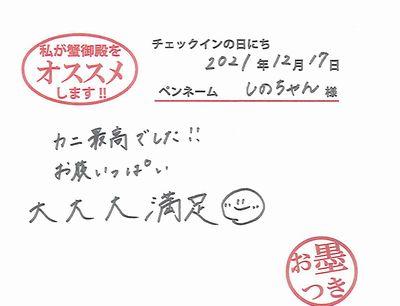 私が蟹御殿を
オススメ
します!!
チェックインの日にち
2021年12月17日
ペンネーム しのちゃん 様
カニ最高でした!!
お腹いっぱい
大大大満足
お墨
つき